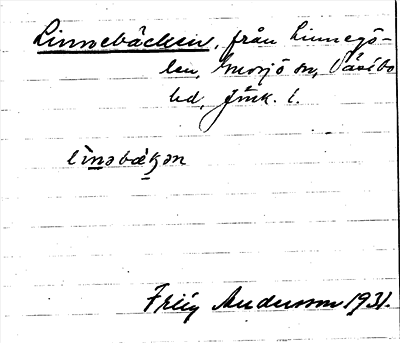 Linnebäcken, från Linnegö-
len, Gnosjö sn, Västbo
hd, Jönk. l.
lìnəbæ̀kən
Friig Andersson 1931.